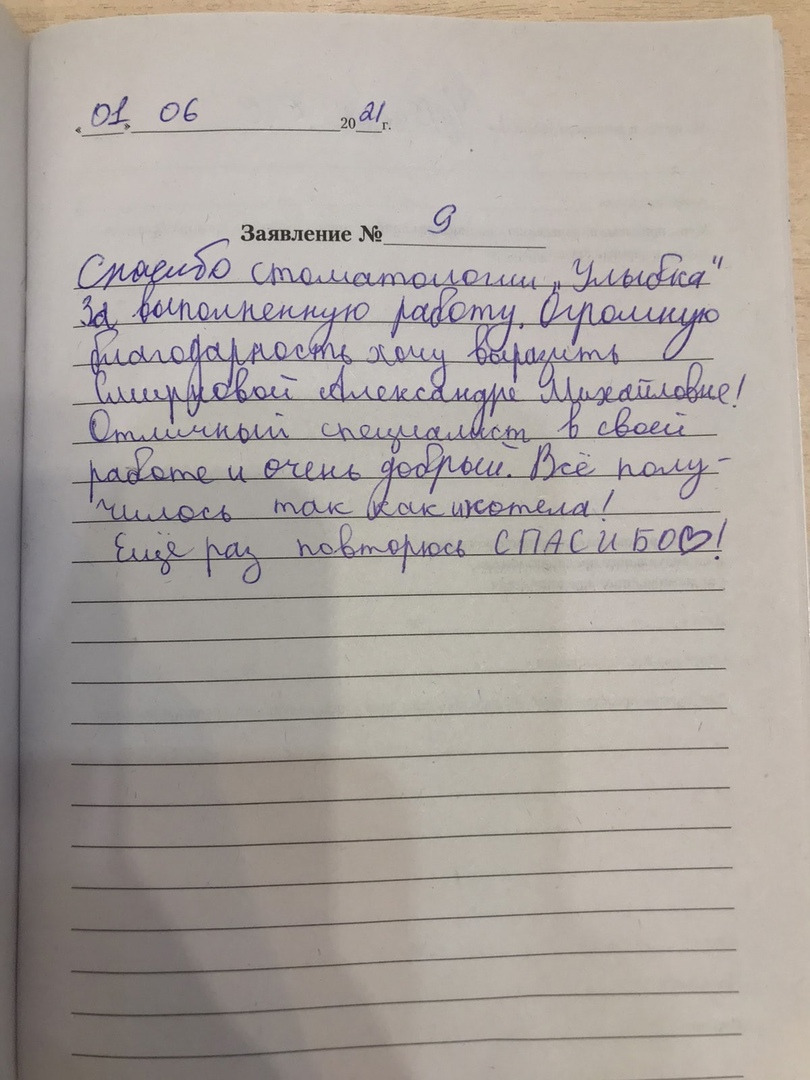 «01» 06 2021г.
Заявление № 9
Спасибо стоматологии „Улыбка"
За выполненную работу. Огромную
благодарность хочу выразить
Смирновой Александре Михайловне!
Отличный специалист в своей
работе и очень добрый. Всё полу-
чилось так как хотела!
Ещё раз повторюсь СПАСИБО♡!